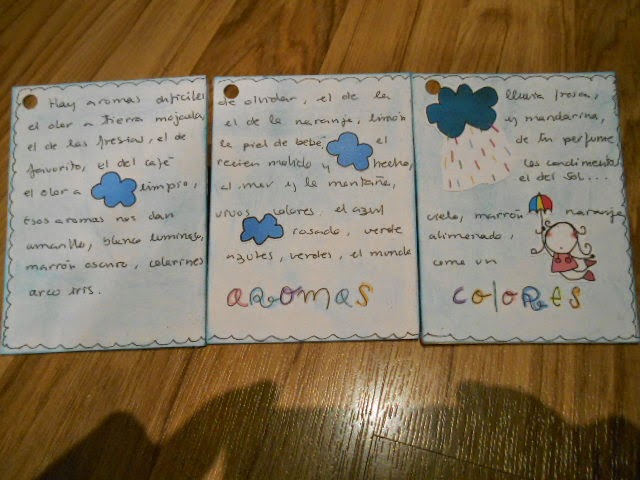 Hay aromas dificiles de olvidar, el de la lluvia fresca,
el olor a tierra mojada, el de la naranja, limón y mandarina,
el de las fresias, el de la piel de bebé, el de tu perfume
favorito, el del café recien molido y hecho, los condimentos
el olor a limpio, al mar y la montaña, el del sol...
Esos aromas nos dan vivos colores. el azul cielo, marrón naranja,
amarillo, blanco luminoso, rosado, verde alimonado,
marrón oscuro, colorines azules, verdes, el mundo como un
arco iris.
AROMAS COLORES